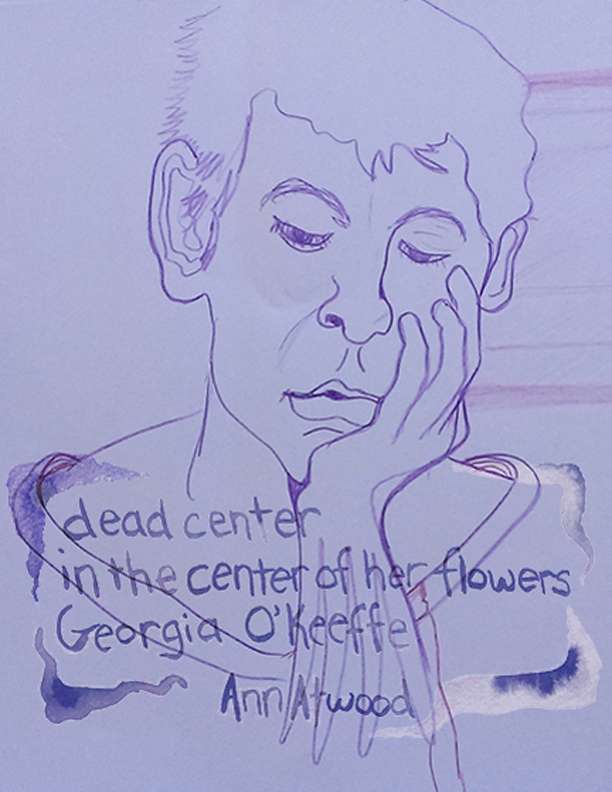 dead center
in the center of her flowers
Georgia O'Keeffe
Ann Atwood